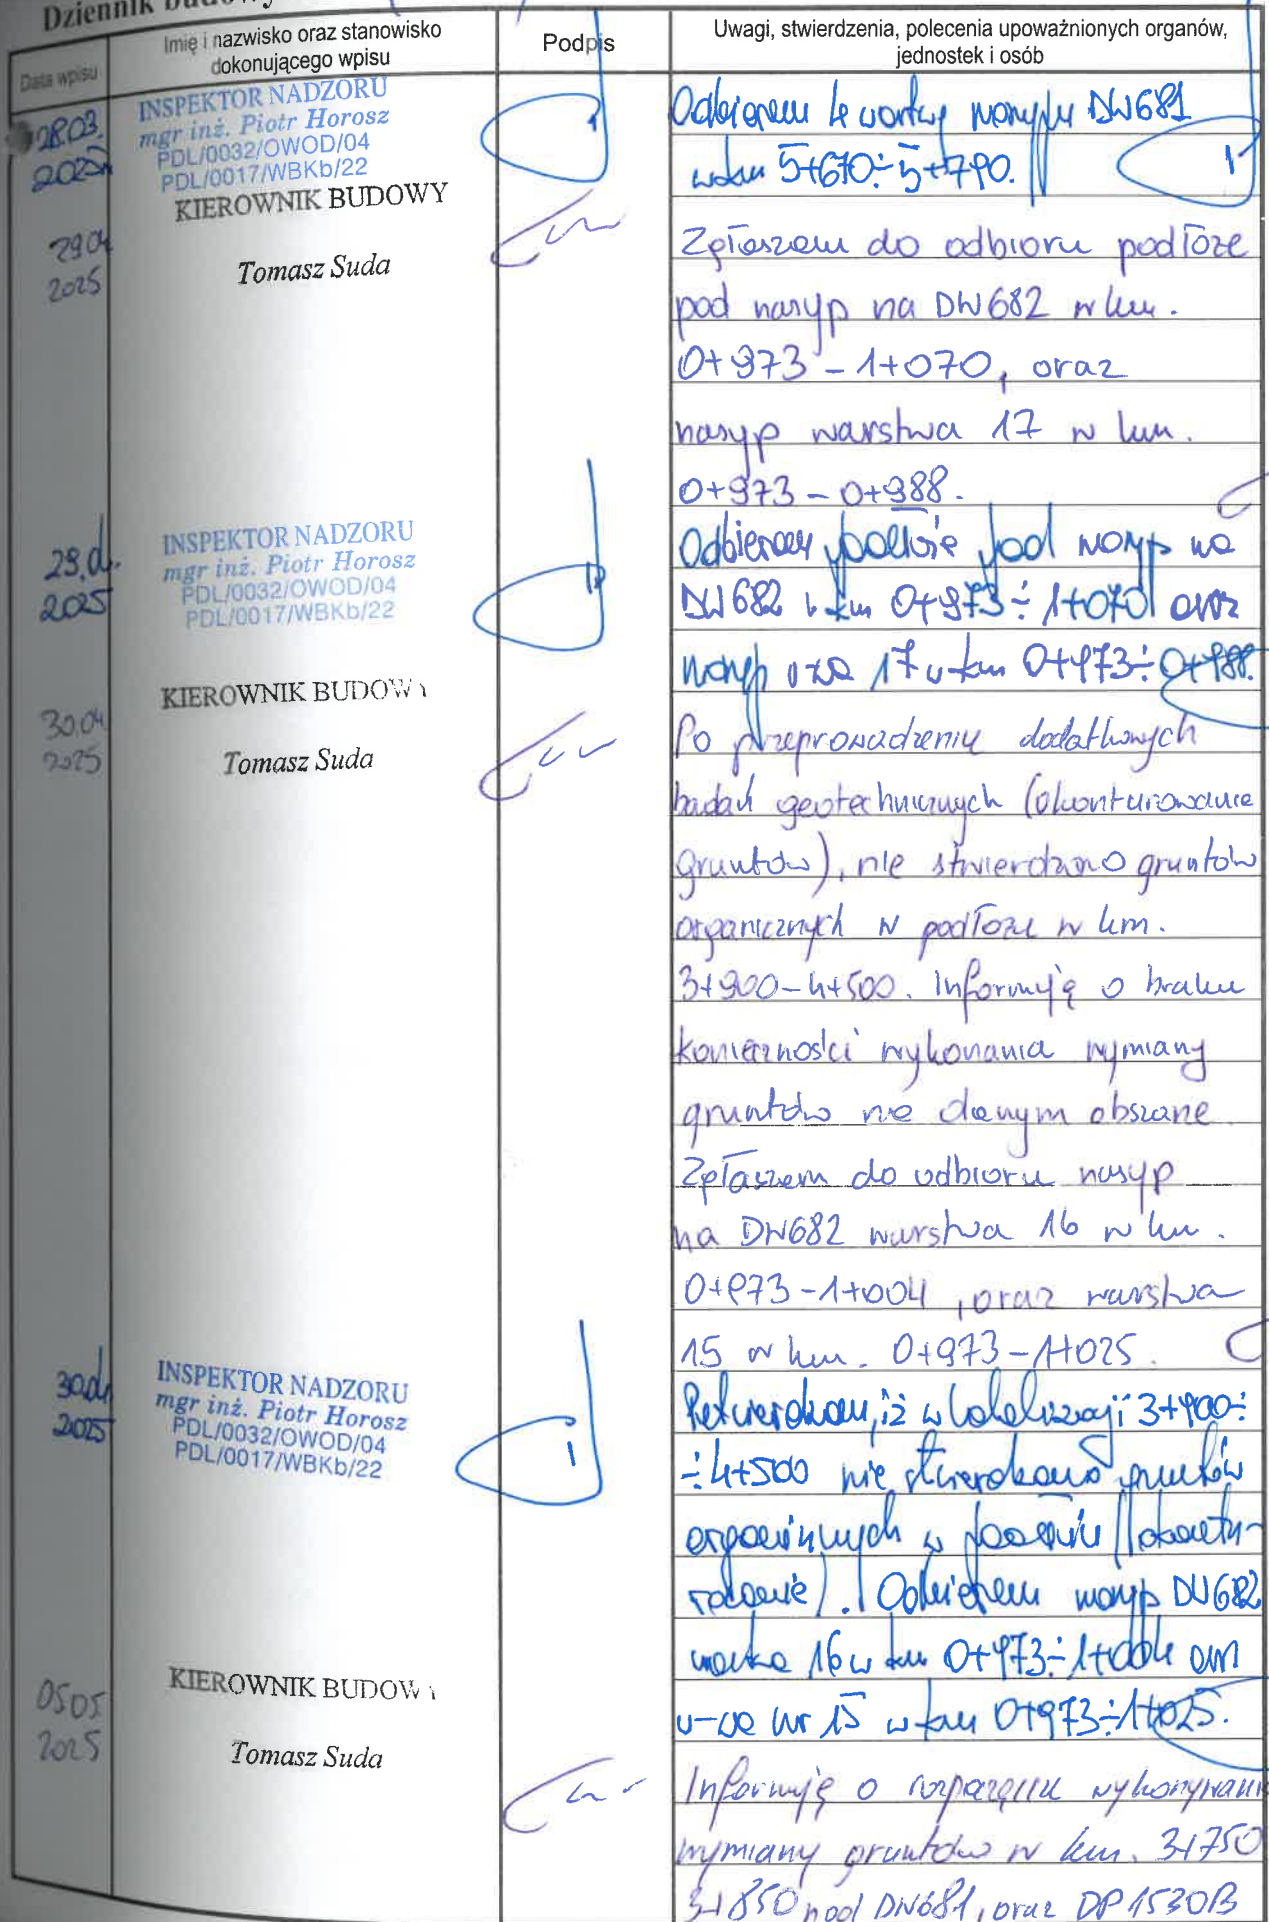 Dziennik Budowy
Data wpisu
Imię i nazwisko oraz stanowisko
dokonującego wpisu
Podpis
Uwagi, stwierdzenia, polecenia upoważnionych organów,
jednostek i osób
28.03.
2025
INSPEKTOR NADZORU
mgr inż. Piotr Horosz
PDL/0032/OWOD/04
PDL/0017/WBKb/22
Odbieram 4 warstwę nasypu DW681
w km 5+670÷5+790.
29.04
2025
KIEROWNIK BUDOWY
Tomasz Suda
Zgłaszam do odbioru podłoże
pod nasyp na DW682 w km.
0+973 - 1+070, oraz
nasyp warstwa 17 w km.
0+973 - 0+988.
29.04.
2025
INSPEKTOR NADZORU
mgr inż. Piotr Horosz
PDL/0032/OWOD/04
PDL/0017/WBKb/22
Odbieram podłoże pod nasyp na
DW682 w km 0+973÷1+070 oraz
nasyp 17 w km 0+973÷0+988.
30.04
2025
KIEROWNIK BUDOWY
Tomasz Suda
Po przeprowadzeniu dodatkowych
badań geotechnicznych (okonturowanie
gruntów), nie stwierdzono gruntów
organicznych w podłożu w km.
3+900-4+500. Informuję o braku
konieczności wykonania wymiany
gruntów na danym obszarze
Zgłaszam do odbioru nasyp
na DW682 warstwa 16 w km.
0+973-1+004, oraz warstwa
15 w km. 0+973-1+025.
30.04
2025
INSPEKTOR NADZORU
mgr inż. Piotr Horosz
PDL/0032/OWOD/04
PDL/0017/WBKb/22
Potwierdzam, iż w lokalizacji 3+900÷
÷4+500 nie stwierdzono gruntów
organicznych w podłożu (okontu-
rowanie). Odbieram nasyp DW682
warstwa 16 w km 0+973÷1+004 oraz
w-wa nr 15 w km 0+973÷1+025.
05.05
2025
KIEROWNIK BUDOWY
Tomasz Suda
Informuję o rozpoczęciu wykonywania
wymiany gruntów w km. 3+750
3+850 pod DW681, oraz DP1530B